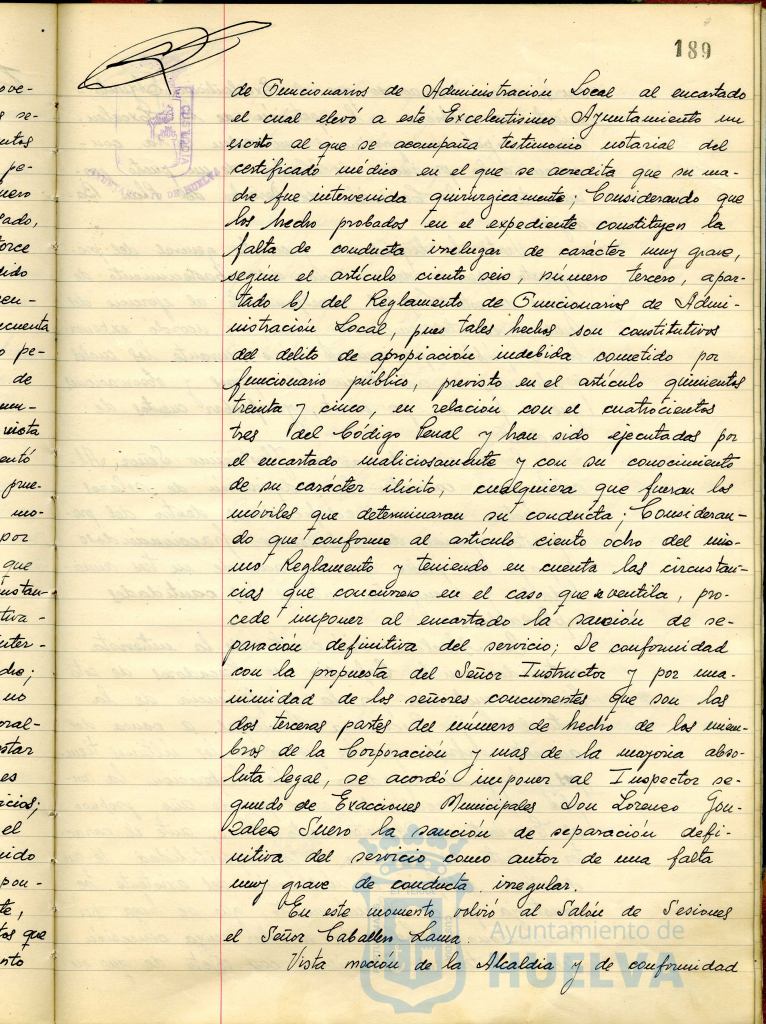 189
de Funcionarios de Administración Local al encartado
el cual elevó a este Excelentisimo Ayuntamiento un
escrito al que se acompaña testimonio notarial del
certificado médico en el que se acredita que su ma-
dre fue intervenida quirurgicamente; Considerando que
los hecho probados en el expediente constituyen la
falta de conducta irrelugar de carácter muy grave,
según el artículo ciento seis, número tercero, apar-
tado b) del Reglamento de Funcionarios de Admi-
nistración Local, pues tales hechos son constitutivos
del delito de apropiación indebida cometido por
funcionario público, previsto en el artículo quinientos
treinta y cinco, en relación con el cuatrocientos
tres del Código Penal y han sido ejecutados por
el encartado maliciosamente y con su conocimiento
de su carácter ilícito, cualquiera que fueran los
móviles que determinaran su conducta; Consideran-
do que conforme al artículo ciento ocho del mis-
mo Reglamento y teniendo en cuenta las circustan-
cias que concurren en el caso que se ventila, pro-
cede imponer al encartado la sanción de se-
paración definitiva del servicio; De conformidad
con la propuesta del Señor Instructor y por una-
nimidad de los señores concurrentes que son las
dos terceras partes del número de hecho de los miem-
bros de la Corporación y mas de la mayoria abso-
luta legal, se acordó imponer al Inspector se-
gundo de Exacciones Municipales Don Lorenzo Gon-
zalez Suero la sanción de separación defi-
nitiva del servicio como autor de una falta
muy grave de conducta irregular.
En este momento volvió al Salón de Sesiones
el Señor Caballero Lama.
Vista moción de la Alcaldia y de conformidad
Ayuntamiento de
HUELVA